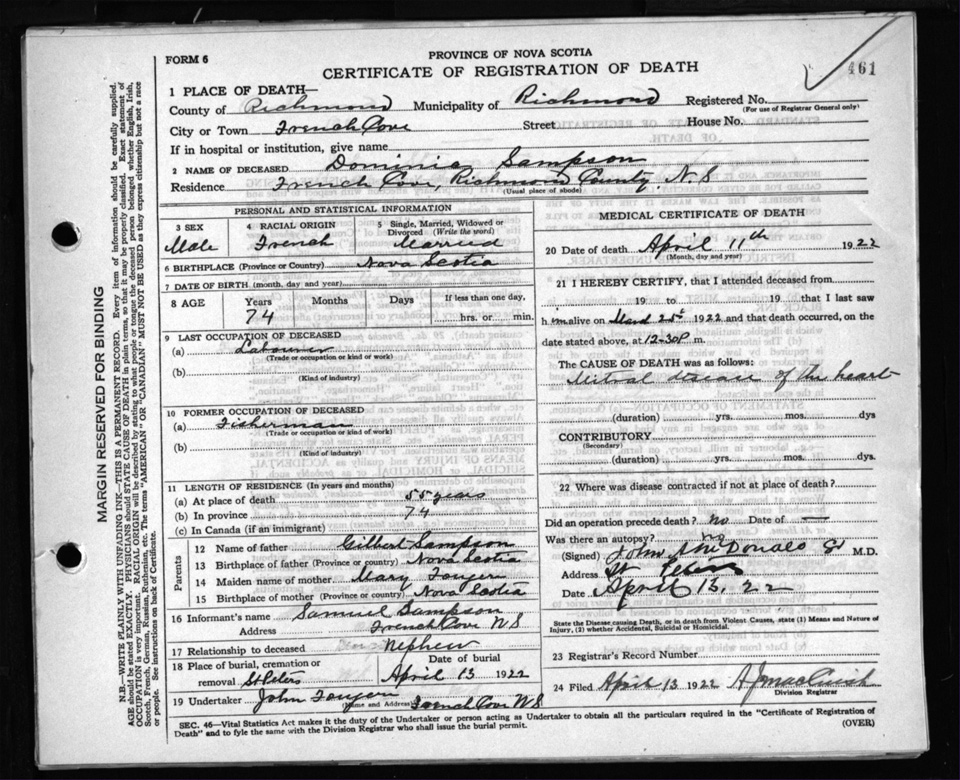 FORM 6
PROVINCE OF NOVA SCOTIA
CERTIFICATE OF REGISTRATION OF DEATH
461
1 PLACE OF DEATH—
County of Richmond Municipality of Richmond Registered No.
(For use of Registrar General only)
City or Town French Cove Street House No.
If in hospital or institution, give name
2 NAME OF DECEASED Dominic Sampson
Residence French Cove, Richmond County N.S
(Usual place of abode)
PERSONAL AND STATISTICAL INFORMATION
3 SEX 4 RACIAL ORIGIN 5 Single, Married, Widowed or Divorced (Write the word)
Male French Married
6 BIRTHPLACE (Province or Country) Nova Scotia
7 DATE OF BIRTH (month, day and year)
8 AGE Years Months Days If less than one day,
74 hrs. or min.
9 LAST OCCUPATION OF DECEASED
(a) Labourer
(Trade or occupation or kind of work)
(b)
(Kind of industry)
10 FORMER OCCUPATION OF DECEASED
(a) Fisherman
(Trade or occupation or kind of work)
(b)
(Kind of industry)
11 LENGTH OF RESIDENCE (In years and months)
(a) At place of death 55 years
(b) In province 74
(c) In Canada (if an immigrant)
Parents
12 Name of father Gilbert Sampson
13 Birthplace of father (Province or country) Nova Scotia
14 Maiden name of mother Mary Fougere
15 Birthplace of mother (Province or Country) Nova Scotia
16 Informant's name Samuel Sampson
Address French Cove N S
17 Relationship to deceased Nephew
18 Place of burial, cremation or removal St Peters Date of burial April 13 1922
19 Undertaker John Fougere French Cove N S
(Name and Address)
MEDICAL CERTIFICATE OF DEATH
20 Date of death April 11th 1922
(Month, day and year)
21 I HEREBY CERTIFY, that I attended deceased from
19 to 19 that I last saw
him alive on 1922 and that death occurred, on the
date stated above, at 12-30 P m.
The CAUSE OF DEATH was as follows:
Mitral disease of the heart
(duration) yrs. mos. dys
CONTRIBUTORY
(Secondary)
(duration) yrs. mos. dys.
22 Where was disease contracted if not at place of death?
Did an operation precede death? No Date of —
Was there an autopsy? No
(Signed) John McDonald M.D.
Address St Peters
Date April 13. 22
State the Disease causing Death, or in death from Violent Causes, state (1) Means and Nature of
Injury, (2) whether Accidental, Suicidal or Homicidal.
23 Registrar's Record Number
24 Filed April 13 1922
Division Registrar
SEC. 46—Vital Statistics Act makes it the duty of the Undertaker or person acting as Undertaker to obtain all the particulars required in the "Certificate of Registration of
Death" and to fyle the same with the Division Registrar who shall issue the burial permit.
(OVER)
MARGIN RESERVED FOR BINDING
N.B.—WRITE PLAINLY WITH UNFADING INK—THIS IS A PERMANENT RECORD. Every item of information should be carefully supplied.
AGE should be stated EXACTLY. PHYSICIANS should STATE CAUSE OF DEATH in plain terms, so that it may be properly classified. Exact statement of
OCCUPATION is very important. RACIAL ORIGIN will be described by stating to what people or tongue the deceased person belonged whether English, Irish,
Scotch, French, German, Russian, Ruthenian, etc. The terms "AMERICAN" OR "CANADIAN" MUST NOT BE USED as they express citizenship but not a race
or people. See instructions on back of Certificate.